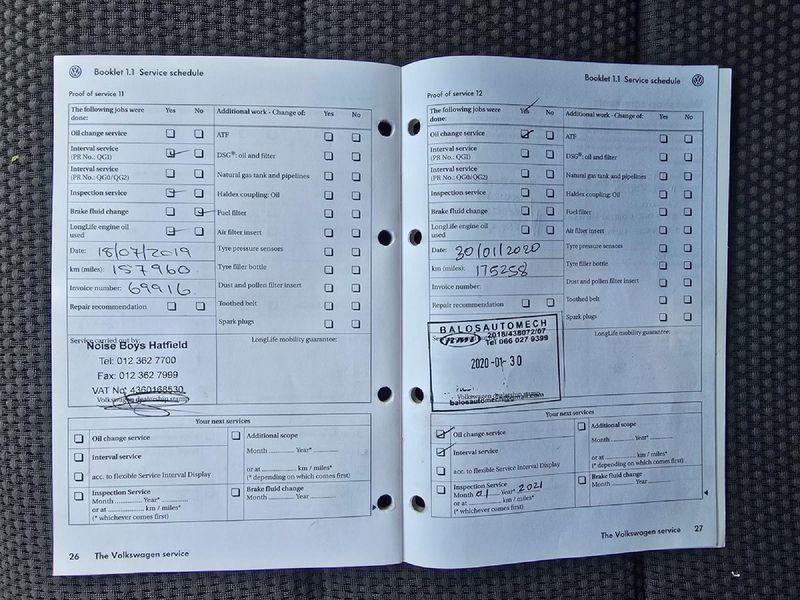 Booklet 1.1 Service schedule
Proof of service 11
The following jobs were done: Yes No
Oil change service
Interval service
(PR No.: QG1)
Interval service
(PR No.: QG0/QG2)
Inspection service
Brake fluid change
LongLife engine oil
used
Date: 18/07/2019
km (miles): 157960
Invoice number: 69916
Repair recommendation
Additional work - Change of: Yes No
ATF
DSG®: oil and filter
Natural gas tank and pipelines
Haldex coupling: Oil
Fuel filter
Air filter insert
Tyre pressure sensors
Tyre filler bottle
Dust and pollen filter insert
Toothed belt
Spark plugs
Service carried out by:
Noise Boys Hatfield
Tel: 012 362 7700
Fax: 012 362 7999
VAT No: 4360168530
Volkswagen dealership stamp
LongLife mobility guarantee:
Your next services
Oil change service
Interval service
acc. to flexible Service Interval Display
Inspection Service
Month ............ Year* ............
or at ............ km / miles*
(* whichever comes first)
Additional scope
Month ............ Year* ............
or at ............ km / miles*
(* depending on which comes first)
Brake fluid change
Month ............ Year ............
26 The Volkswagen service
Booklet 1.1 Service schedule
Proof of service 12
The following jobs were done: Yes No
Oil change service
Interval service
(PR No.: QG1)
Interval service
(PR No.: QG0/QG2)
Inspection service
Brake fluid change
LongLife engine oil
used
Date: 30/01/2020
km (miles): 175258
Invoice number:
Repair recommendation
Additional work - Change of: Yes No
ATF
DSG®: oil and filter
Natural gas tank and pipelines
Haldex coupling: Oil
Fuel filter
Air filter insert
Tyre pressure sensors
Tyre filler bottle
Dust and pollen filter insert
Toothed belt
Spark plugs
BALOSAUTOMECH
rmi 2018/438072/07
Tel 066 027 9399
2020-01-30
Volkswagen dealership stamp
balosautomech@gmail.com
LongLife mobility guarantee:
Your next services
Oil change service
Interval service
acc. to flexible Service Interval Display
Inspection Service
Month 01 Year* 2021
or at ............ km / miles*
(* whichever comes first)
Additional scope
Month ............ Year* ............
or at ............ km / miles*
(* depending on which comes first)
Brake fluid change
Month ............ Year ............
The Volkswagen service 27